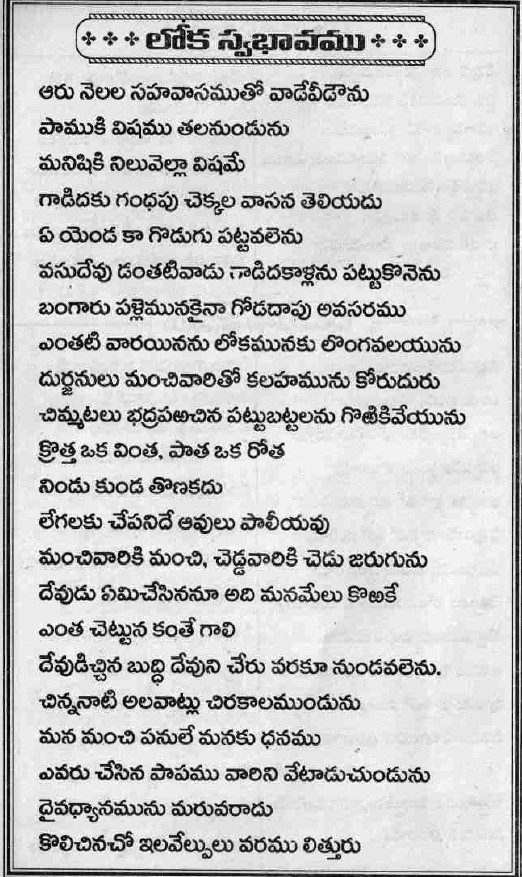 లోక స్వభావము
ఆరు నెలల సహవాసముతో వాడేవీడౌను
పాముకి విషము తలనుండును
మనిషికి నిలువెల్లా విషమే
గాడిదకు గంధపు చెక్కల వాసన తెలియదు
ఏ యెండ కా గొడుగు పట్టవలెను
వసుదేవు డంతటివాడు గాడిదకాళ్లను పట్టుకొనెను
బంగారు పళ్లెమునకైనా గోడదాపు అవసరము
ఎంతటి వారయినను లోకమునకు లొంగవలయును
దుర్జనులు మంచివారితో కలహమును కోరుదురు
చిమ్మటలు భద్రపఱచిన పట్టుబట్టలను గొఱికివేయును
క్రొత్త ఒక వింత, పాత ఒక రోత
నిండు కుండ తొణకదు
లేగలకు చేపనిదే ఆవులు పాలీయవు
మంచివారికి మంచి, చెడ్డవారికి చెడు జరుగును
దేవుడు ఏమిచేసిననూ అది మనమేలు కొఱకే
ఎంత చెట్టున కంతే గాలి
దేవుడిచ్చిన బుద్ధి దేవుని చేరు వరకూ నుండవలెను.
చిన్ననాటి అలవాట్లు చిరకాలముండును
మన మంచి పనులే మనకు ధనము
ఎవరు చేసిన పాపము వారిని వేటాడుచుండును
దైవధ్యానమును మరువరాదు
కొలిచినచో ఇలవేల్పులు వరము లిత్తురు